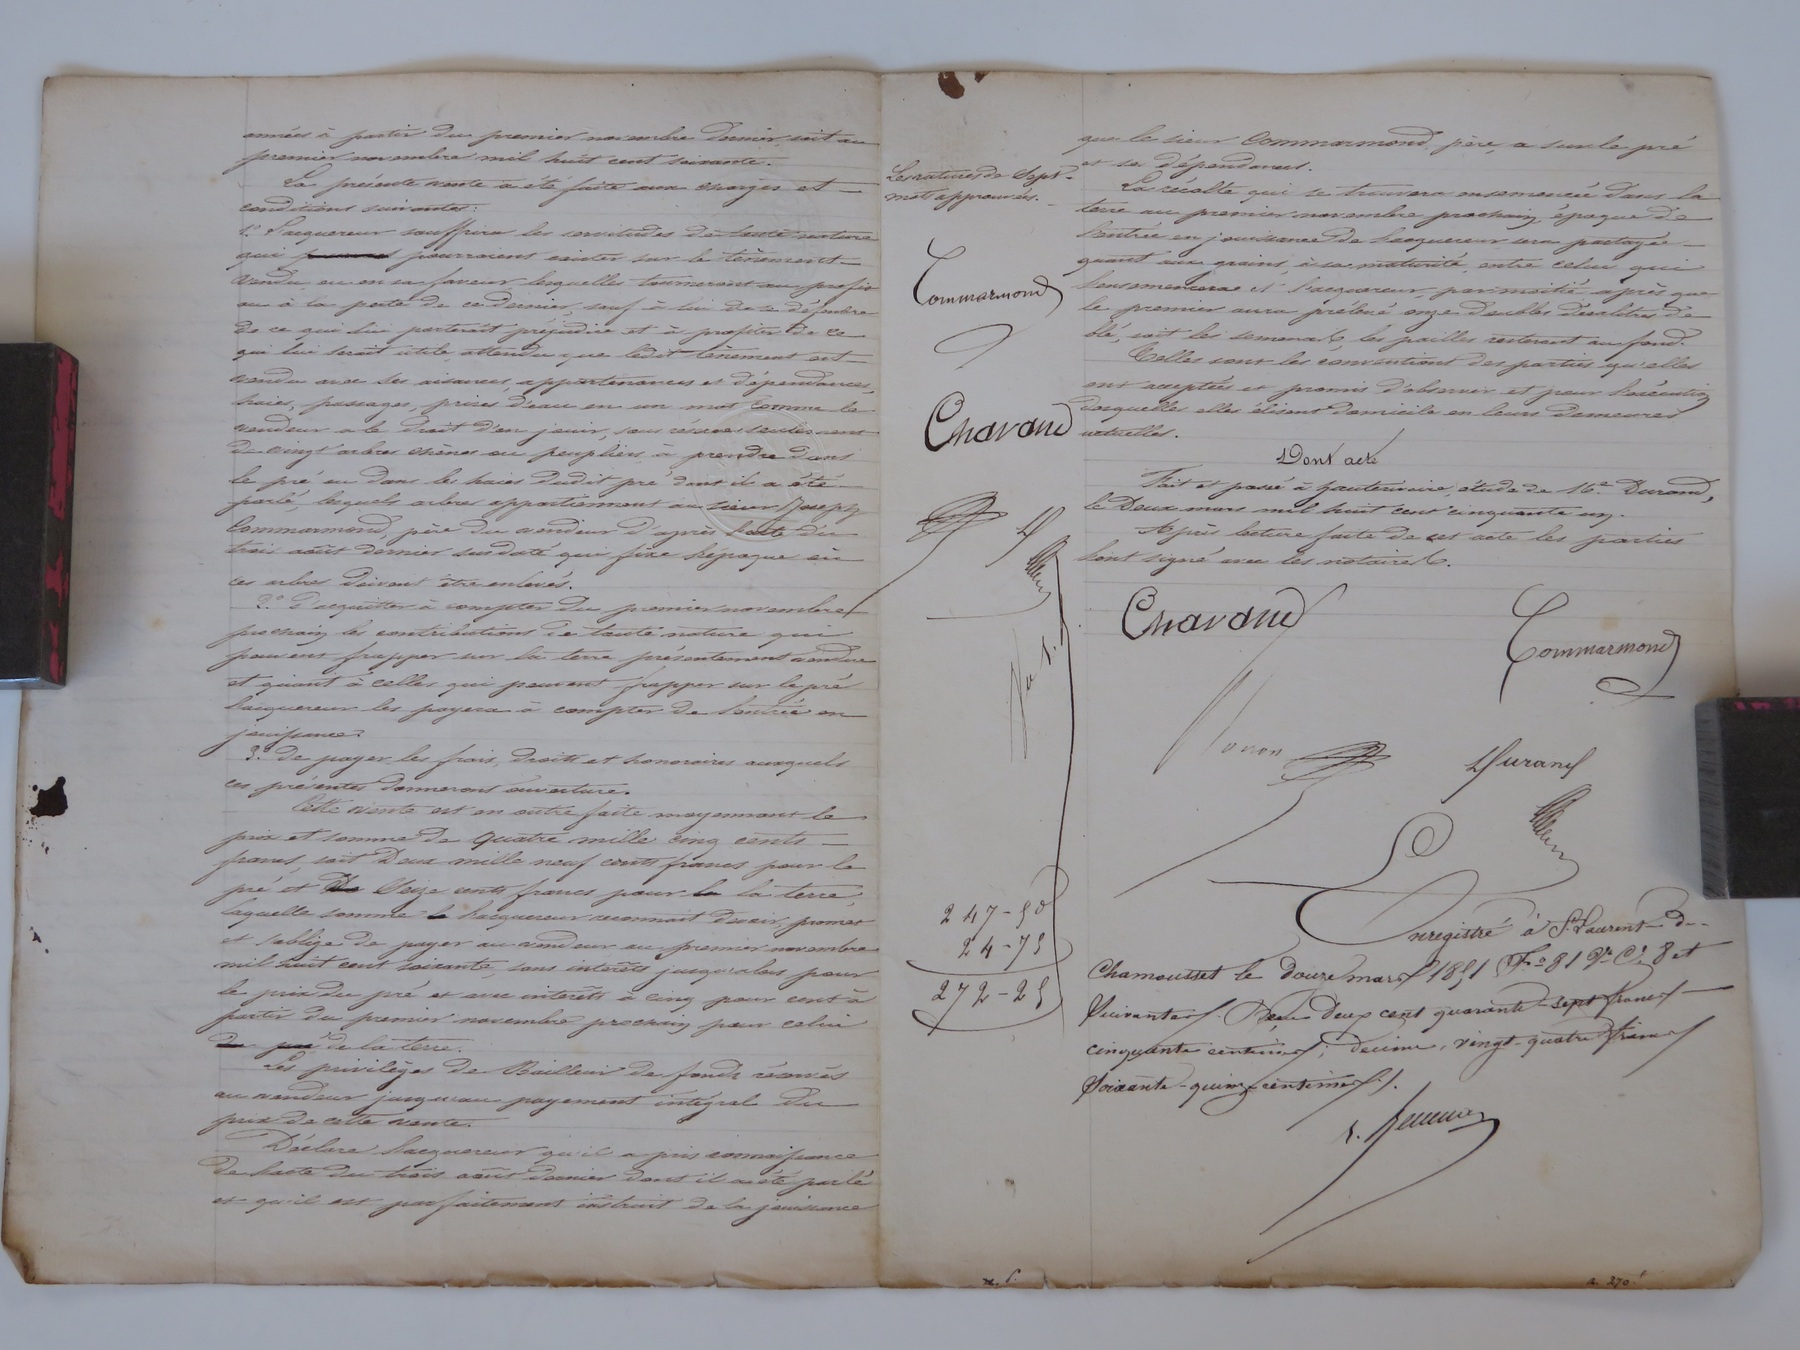 années à partir du premier novembre dernier, soit au
premier novembre mil huit cent soixante.
La présente vente a été faite aux charges et
conditions suivantes:
1° L'acquereur souffrira les servitudes de toute nature
qui pourraient exister sur le tènement
vendu ou en sa faveur lesquelles tourneront au profit
ou à la perte de ce dernier, sauf à lui de se défendre
de ce qui lui porterait préjudice et à profiter de ce
qui lui serait utile attendu que ledit tènement est
vendu avec ses aisances, appartenances et dépendances,
haies, passages, prises d'eau en un mot comme le
vendeur a le droit d'en jouir, sans réserve seulement
de vingt arbres chênes ou peupliers à prendre dans
le pré ou dans les haies dudit pré dont il a été
parlé, lesquels arbres appartiennent au sieur Joseph
Commarmond, père du vendeur d'après l'acte du
trois août dernier susdaté qui fixe l'époque où
ces arbres doivent être enlevés.
2° D'acquitter à compter du premier novembre
prochain les contributions de toute nature qui
peuvent frapper sur la terre présentement vendue
et quant à celles qui peuvent frapper sur le pré
l'acquereur les payera à compter de l'entrée en
jouissance.
3° De payer les frais, droits et honoraires auxquels
ces présentes donneront ouverture.
Cette vente est en outre faite moyennant le
prix et somme de quatre mille cinq cents
francs, soit deux mille neuf cents francs pour le
pré et seize cents francs pour la terre,
laquelle somme l'acquereur reconnait devoir, promet
et s'oblige de payer au vendeur au premier novembre
mil huit cent soixante, sans intérêts jusqu'alors pour
le prix du pré et avec intérêts à cinq pour cent à
partir du premier novembre prochain pour celui
de la terre.
Les privilèges de Bailleur de fonds réservés
au vendeur jusqu'au payement intégral du
prix de cette vente.
Déclare l'acquereur qu'il a pris connaissance
de l'acte du trois août dernier dont il a été parlé
et qu'il est parfaitement instruit de la jouissance
Les ratures de Sept
mots approuvées.
Commarmond
Chavand
247-50
24-75
272-25
que le sieur Commarmond, père, a sur le pré
et ses dépendances.
La récolte qui se trouvera ensemencée dans la
terre au premier novembre prochain, époque de
l'entrée en jouissance de l'acquereur sera partagée
quant aux grains, à sa maturité, entre celui qui
l'ensemencera et l'acquereur, par moitié après que
le premier aura prélevé onze doubles décalitres de
blé, soit les semences, les pailles resteront au fond.
Telles sont les conventions des parties qu'elles
ont acceptées et promis d'observer et pour l'exécution
desquelles elles élisent domicile en leurs demeures
actuelles.
Dont acte
Fait et passé à hauterivoire, étude de Me Durand,
le Deux mars mil huit cent cinquante un.
Après lecture faite de cet acte les parties
l'ont signé avec les notaires.
Chavand
Commarmond
Durand
Enregistré à St Laurent-de-
Chamousset le douze mars 1851 Fo 81 Vo Ce 8 et
Suivantes. Reçu deux cent quarante-sept francs
cinquante centimes; décime, vingt-quatre francs
soixante-quinze centimes.